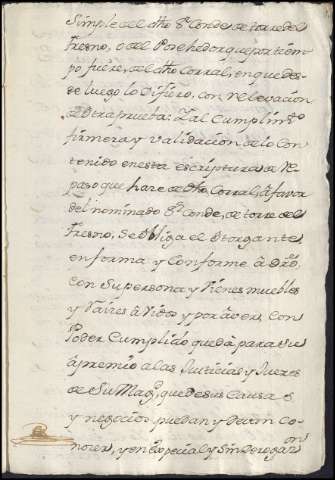 Simple del dho Sr. Conde de torre del
fresno, o del Posehedor que por tiem-
po fuere, del dho Corral, en que des-
de luego lo Difiero, con relevacion
de Otra prueba: Y al Cumplimto.
firmeza y Validacion de lo Con-
tenido en esta escriptura de Re-
paso que haze de dho Corral, â favor
del nominado Sr. Conde, de torre del
Fresno, Se Obliga el Otorgante,
en forma y Conforme â Dro.
con Su persona y Vienes muebles
y raices âvidos y por âver, Con
Poder Cumplido que dâ para Su
âpremio â las Justicias y Jueces
de Su Magd. que de sus Causas
y negocios puedan y devan Co-
nocer, y en expecial y Sin derogar